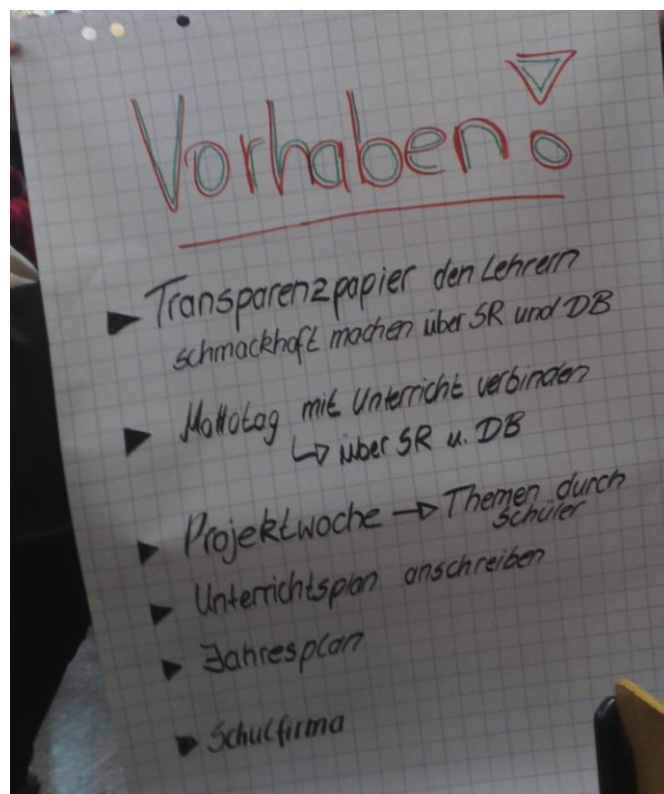 Vorhaben!
► Transparenzpapier den Lehrern
schmackhaft machen über SR und DB
► Mottotag mit Unterricht verbinden
↳ über SR u. DB
► Projektwoche → Themen durch
Schüler
► Unterrichtsplan anschreiben
► Jahresplan
► Schulfirma